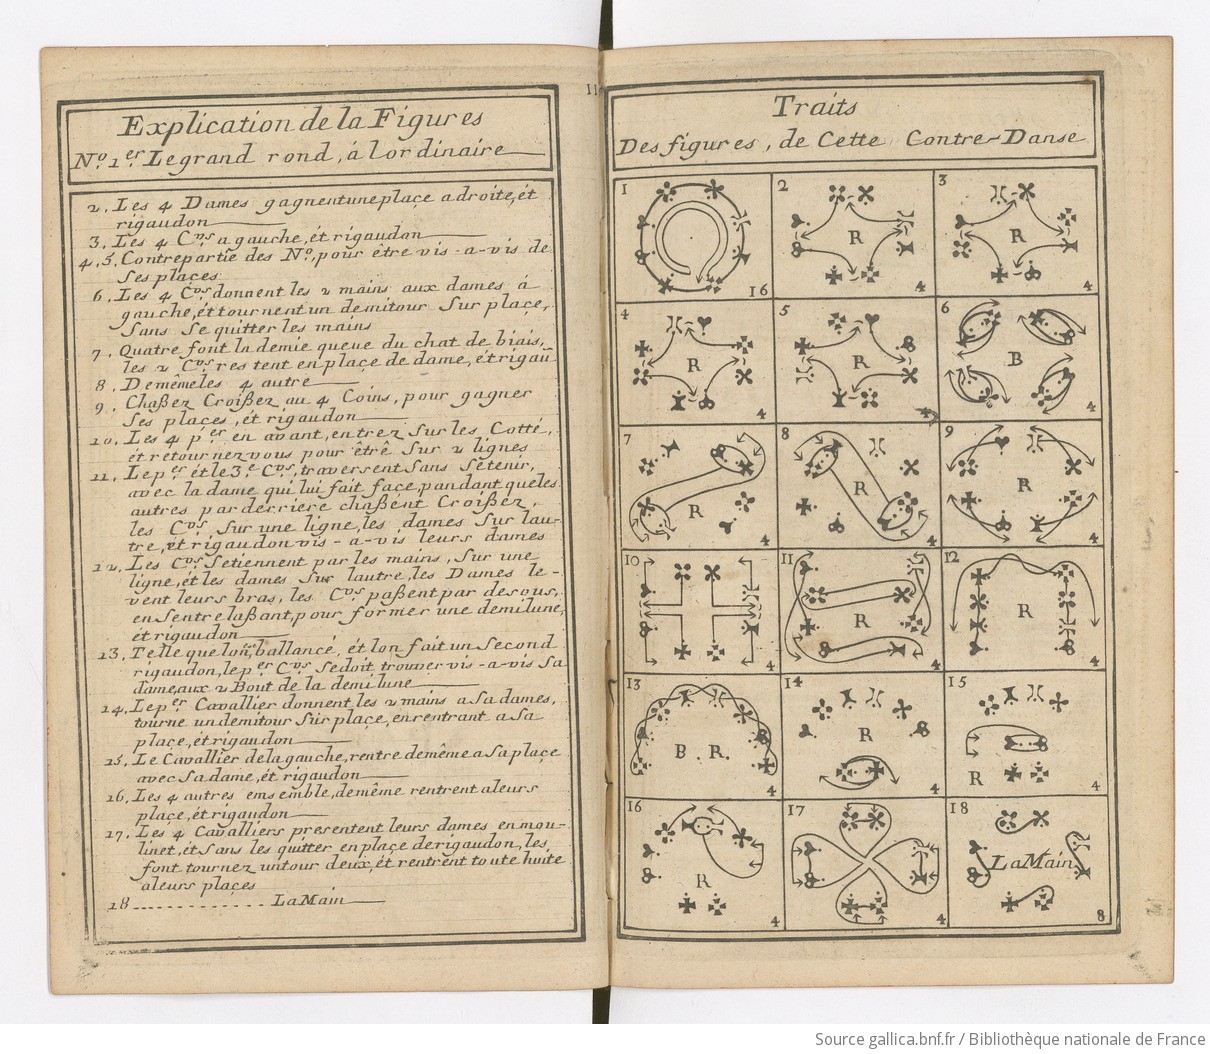 Explication de la Figures
N.º 1.er Le grand rond, á lordinaire
2. Les 4 Dames gagnent une place a droite, ét
rigaudon
3. Les 4 C.vrs a gauche, ét rigaudon
4.5. Contrepartie des N.º, pour être vis-a-vis de
Ses places
6. Les 4 C.vrs donnent les 2 mains aux dames á
gauche, ét tournent un demitour Sur place,
Sans Se quitter les mains
7. Quatre font la demie queue du chat de biais,
les 2 C.vrs res tent en place de dame, ét rigau
8. De même les 4 autre
9. Chaßez Croißez au 4 Coins, pour gagner
Ses places, ét rigaudon
10. Les 4 p.er en avant, entrez Sur les Cotté,
ét retournez vous pour êtrê Sur 2 lignes
11. Le p.er ét le 3.e C.vrs, traversent Sans Setenir,
avec la dame qui lui fait face, pandant que les
autres par derriere chaßént Croißez,
les C.vrs Sur une ligne, les dames Sur lau-
tre, ét rigaudon vis-a-vis leurs dames
12. Les C.vrs Setiennent par les mains, Sur une
ligne, ét les dames Sur lautre, les Dames le-
vent leurs bras, les C.vrs paßent par desous,
en Sentre laßant, pour former une demi lune,
ét rigaudon
13. Telle que lon ballancé, ét lon fait un Second
rigaudon, le p.er C.vrs Se doit trouver vis-a-vis Sa
dame, aux 2 Bout de la demi lune
14. Le p.er Cavallier donnent les 2 mains a Sa dames,
tourne un demitour Sur place, en rentrant a Sa
place, ét rigaudon
15. Le Cavallier de la gauche, rentre de même a Sa place
avec Sa dame, ét rigaudon
16. Les 4 autres emsemble, de même rentrent a leurs
place, ét rigaudon
17. Les 4 Cavalliers presentent leurs dames en mou-
linet, ét Sans les quitter en place de rigaudon, les
font tournez un tour deux, ét rentrent toute huite
a leurs places
18 ............. La Main
11
Traits
Des figures, de Cette Contre-Danse
1
16
2
R
4
3
R
4
4
R
4
5
R
4
6
B
4
7
R
4
8
R
4
9
R
4
10
4
11
R
4
12
R
4
13
B. R.
4
14
R
4
15
R
4
16
R
4
17
4
18
La Main
8
Source gallica.bnf.fr / Bibliothèque nationale de France